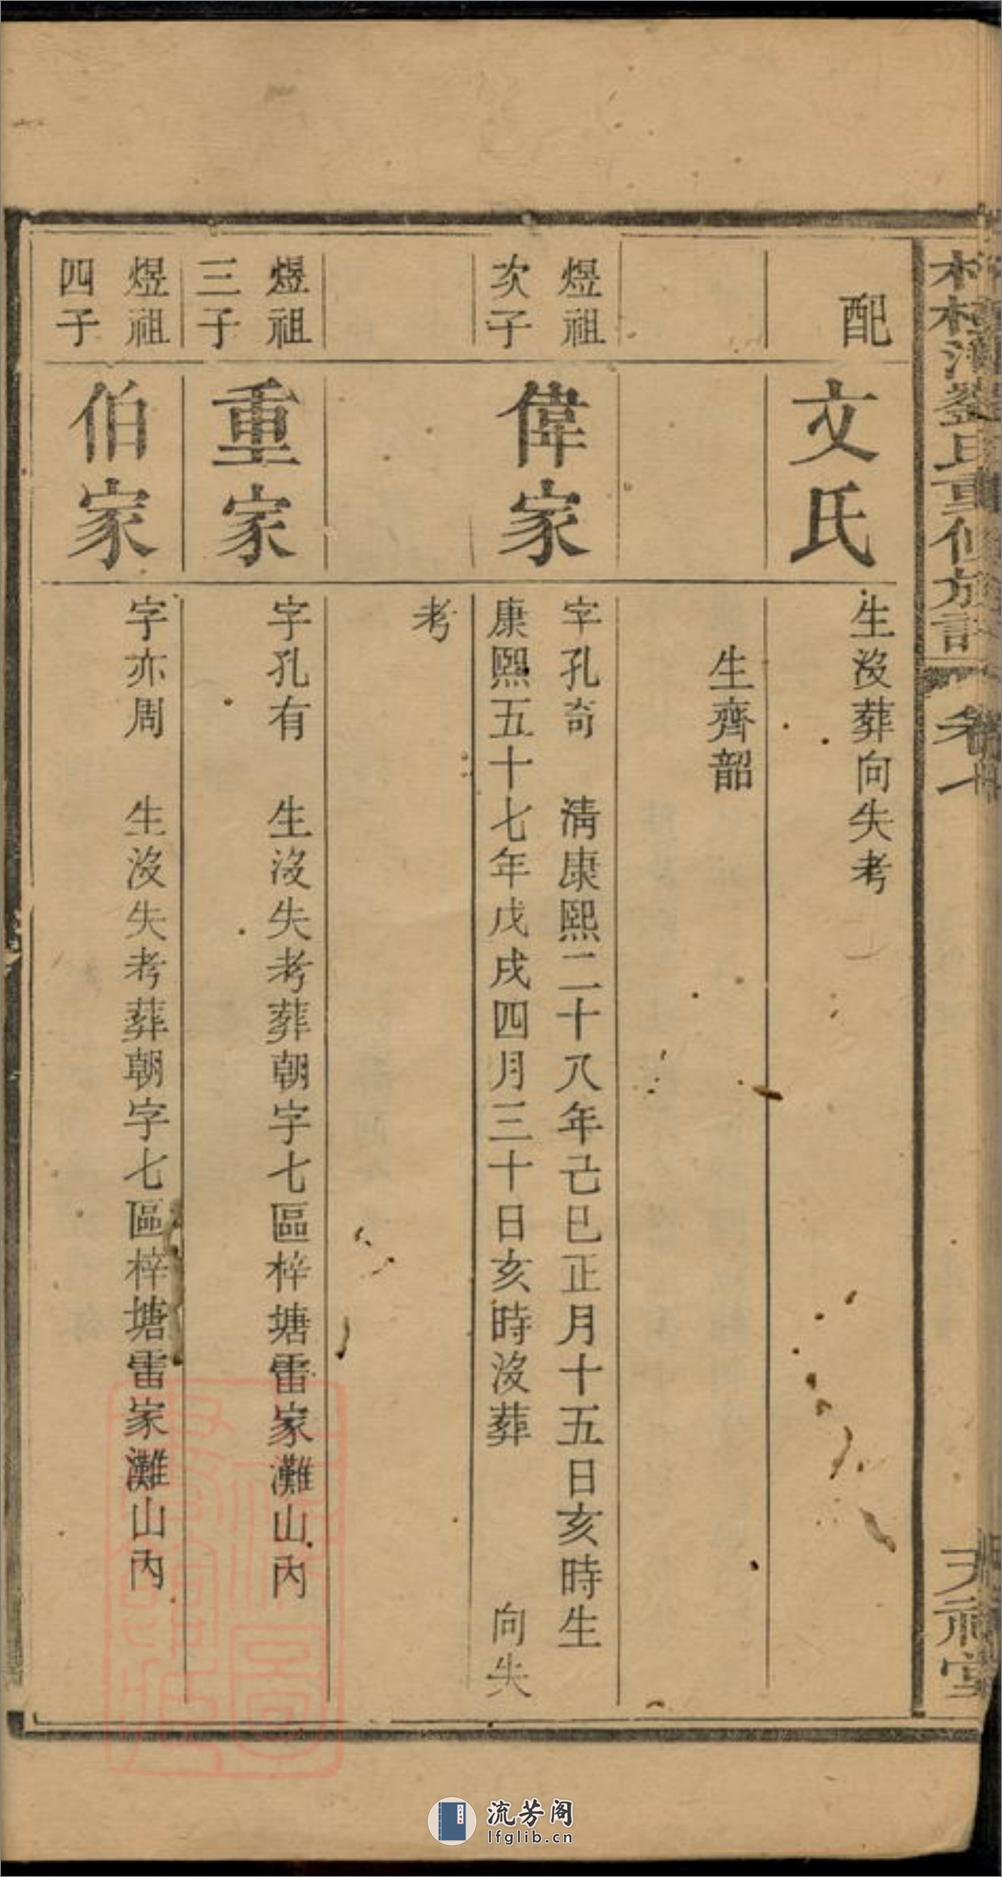 氏重修族譜
卷十
天祿堂
配
文氏
生沒葬向失考
生齊韶
煜祖
次子
偉家
字孔奇 清康熙二十八年己巳正月十五日亥時生
康熙五十七年戊戌四月三十日亥時沒葬 向失
考
煜祖
三子
重家
字孔有 生沒失考葬朝字七區梓塘雷家灘山內
煜祖
四子
伯家
字亦周 生沒失考葬朝字七區梓塘雷家灘山內
流芳阁
lfglib.cn